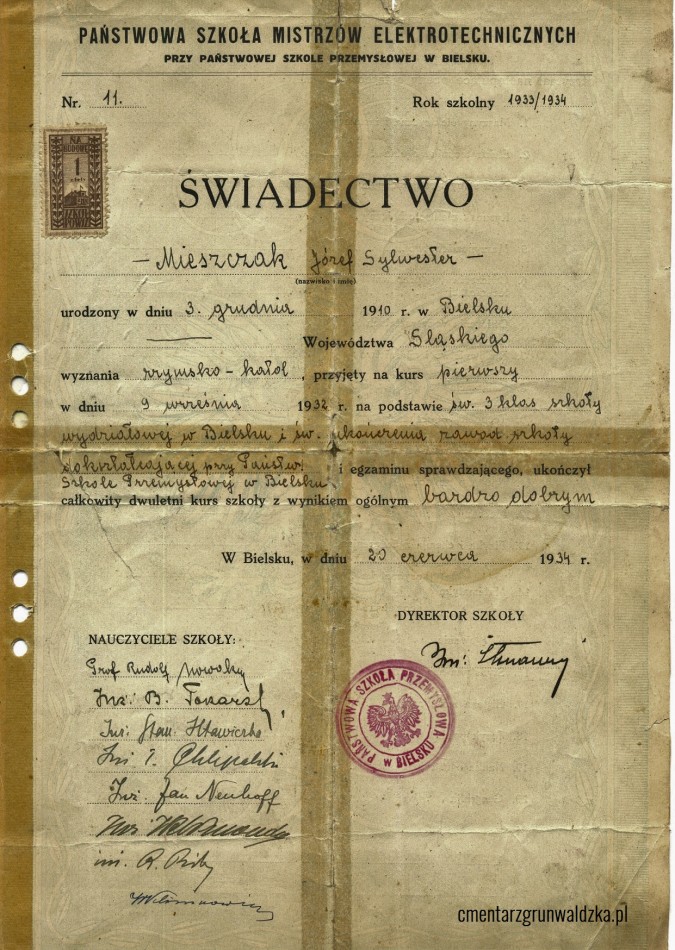 PAŃSTWOWA SZKOŁA MISTRZÓW ELEKTROTECHNICZNYCH
PRZY PAŃSTWOWEJ SZKOLE PRZEMYSŁOWEJ W BIELSKU.
Nr. 11. Rok szkolny 1933/1934
NA
BUDOWĘ
1
ŚWIADECTWO
— Mieszczak Józef Sylwester —
(nazwisko i imię)
urodzony w dniu 3. grudnia 1910 r. w Bielsku
Województwa Śląskiego
wyznania rzymsko-katol, przyjęty na kurs pierwszy
w dniu 9 września 1932 r. na podstawie św. 3 klas szkoły
wydziałowej w Bielsku i św. ukończenia zawod szkoły
dokształcającej przy Państw. i egzaminu sprawdzającego, ukończył
Szkole Przemysłowej w Bielsku
całkowity dwuletni kurs szkoły z wynikiem ogólnym bardzo dobrym
W Bielsku, w dniu 20 czerwca 1934 r.
DYREKTOR SZKOŁY
NAUCZYCIELE SZKOŁY:
Inż:
Prof Rudolf Nowak
Inż. B. Tokarski
Inż: Stan. Hławiczka
Inż
Inż. Jan Neuhoff
Inż.
inż. R.
PAŃSTWOWA SZKOŁA PRZEMYSŁOWA
w BIELSKU
cmentarzgrunwaldzka.pl